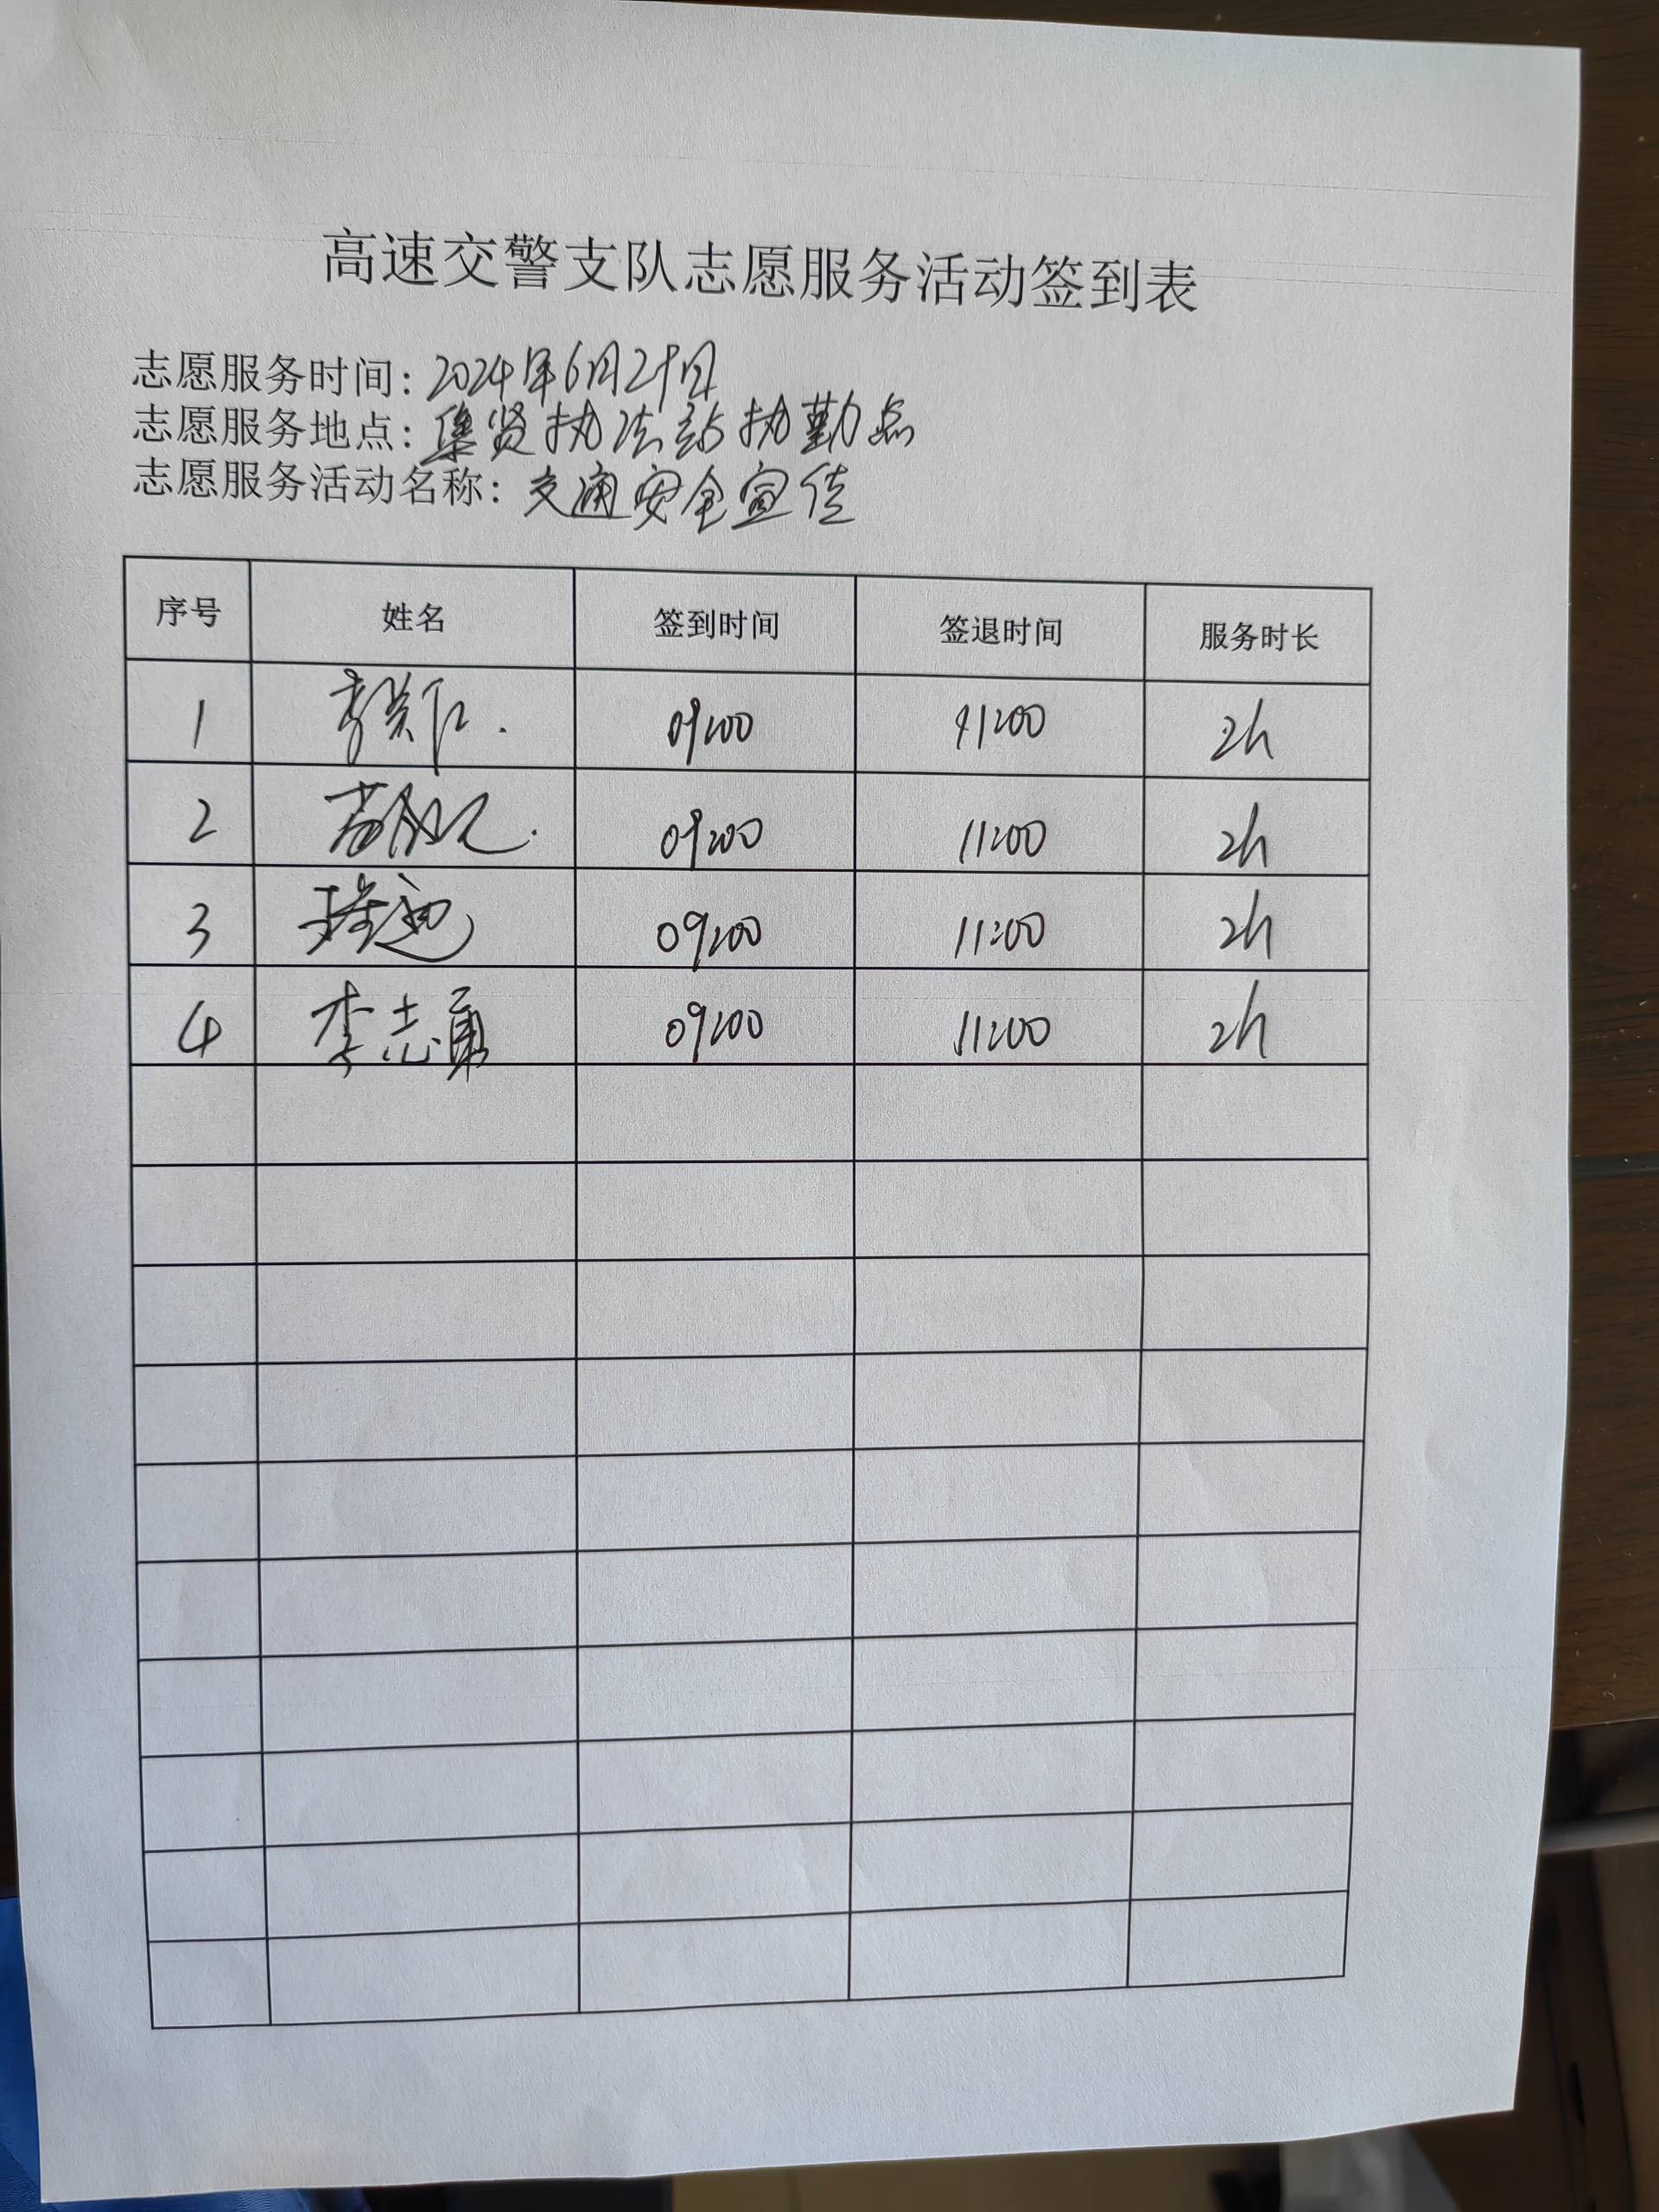 高速交警支队志愿服务活动签到表
志愿服务时间：2024年6月29日
志愿服务地点：集贤执法站执勤点
志愿服务活动名称：交通安全宣传
序号 姓名 签到时间 签退时间 服务时长
1 09:00 11:00 2h
2 09:00 11:00 2h
3 09:00 11:00 2h
4 李志勇 09:00 11:00 2h